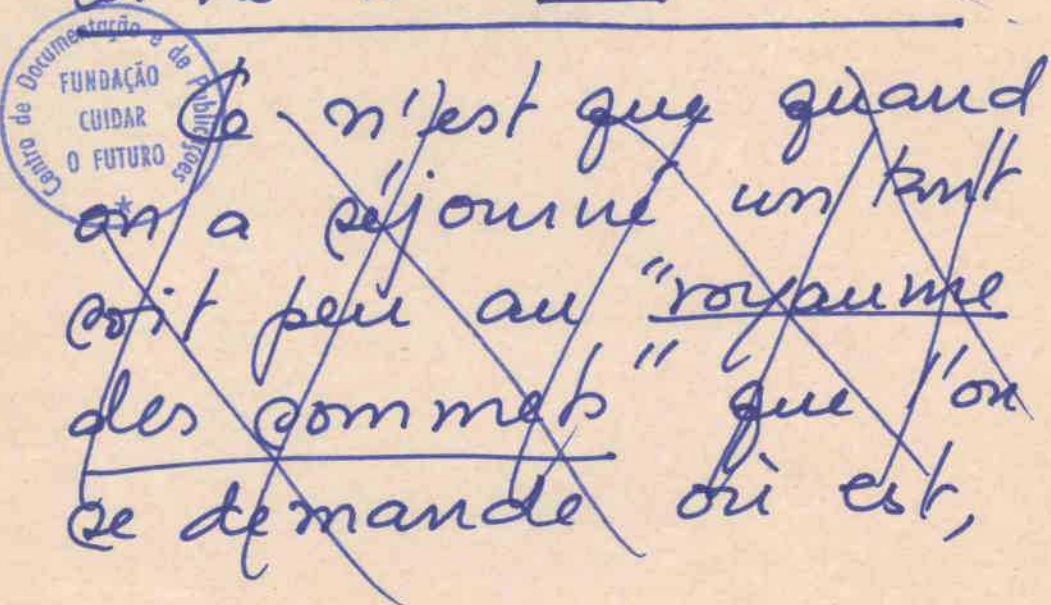 Centro de Documentação e de Publicações
FUNDAÇÃO
CUIDAR
O FUTURO
Ce n'est que quand
on a séjourné un tant
soit peu au "royaume
des sommets" que l'on
se demande où est,